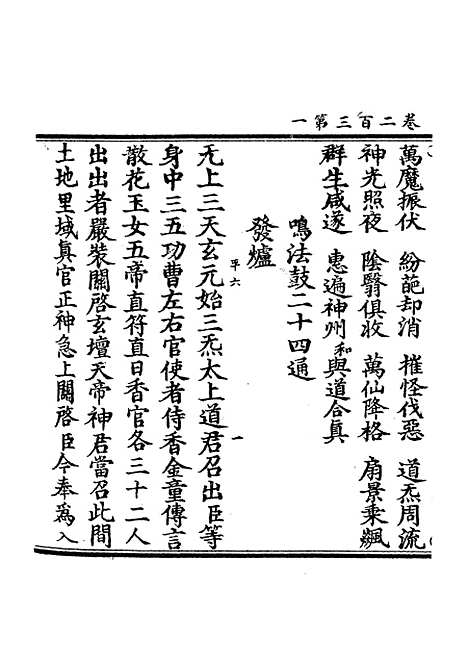 卷二百三第一
萬魔振伏　紛葩却消　摧怪伐惡　道炁周流
神光照夜　陰翳俱收　萬仙降格　扇景乘飆
群生咸遂　惠遍神州和與道合真
鳴法鼓二十四通
發爐
平六　一
无上三天玄元始三炁太上道君召出臣等
身中三五功曹左右官使者侍香金童傳言
散花玉女五帝直符直日香官各三十二人
出出者嚴裝關啓玄壇天帝神君當召此間
土地里域真官正神急上關啓臣今奉爲入